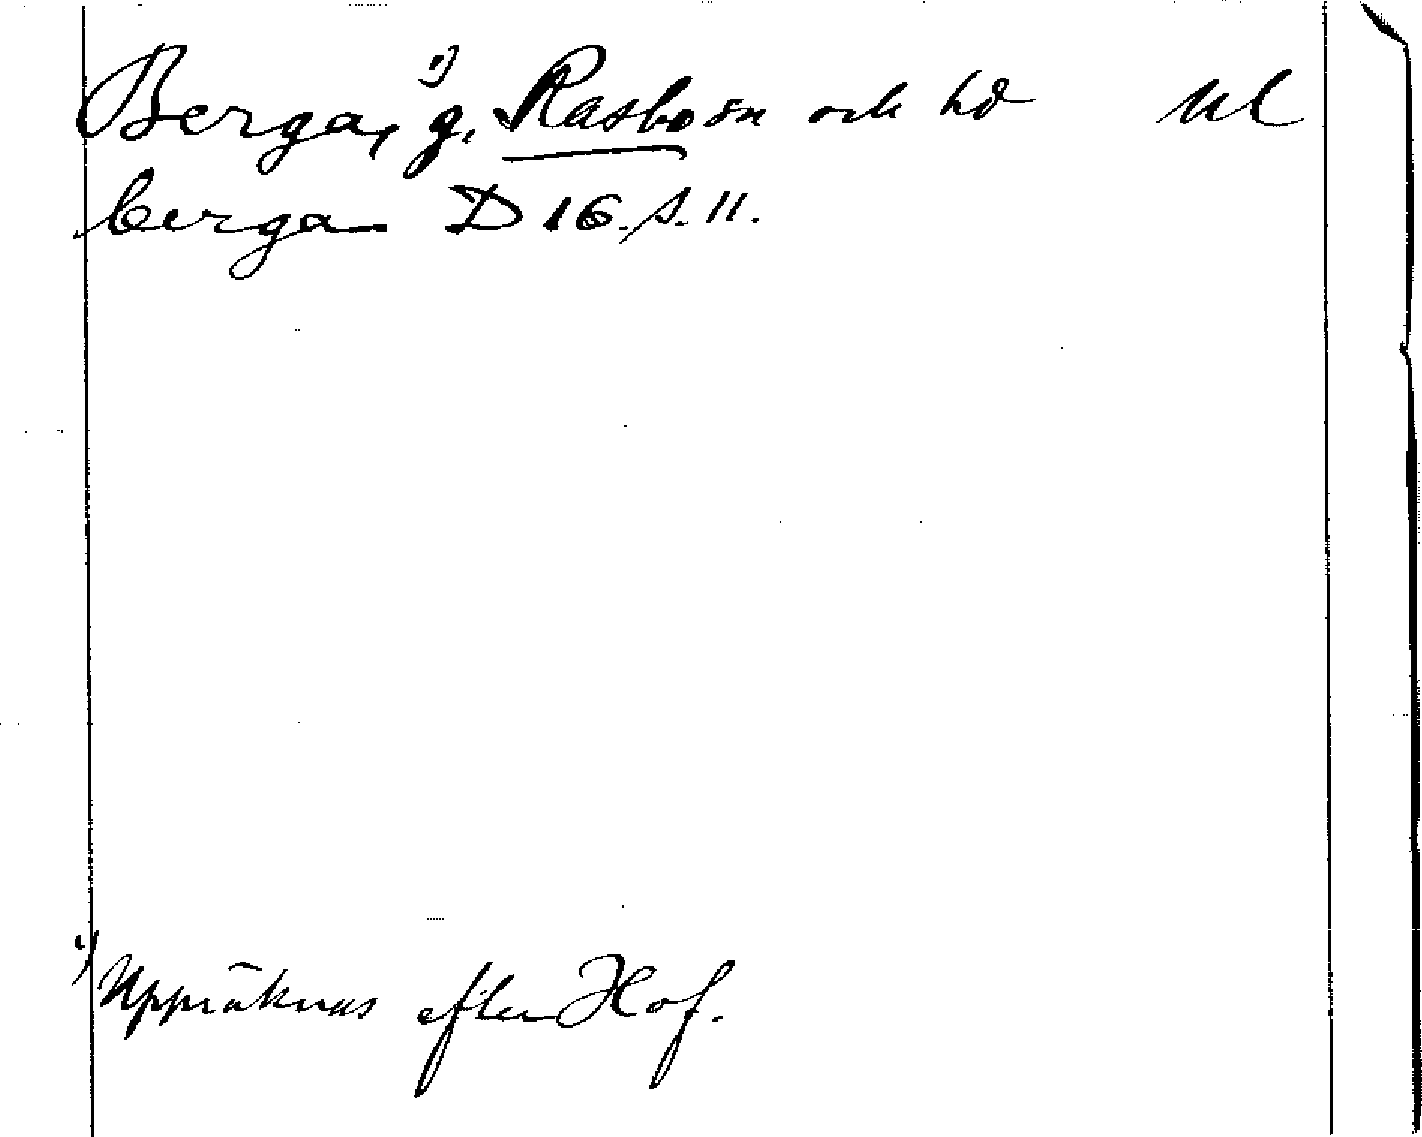 Berga, ¹) g. Rasbo sn och hd Ul
berga D 16. s. 11.
¹) Uppräknas efter Hof.